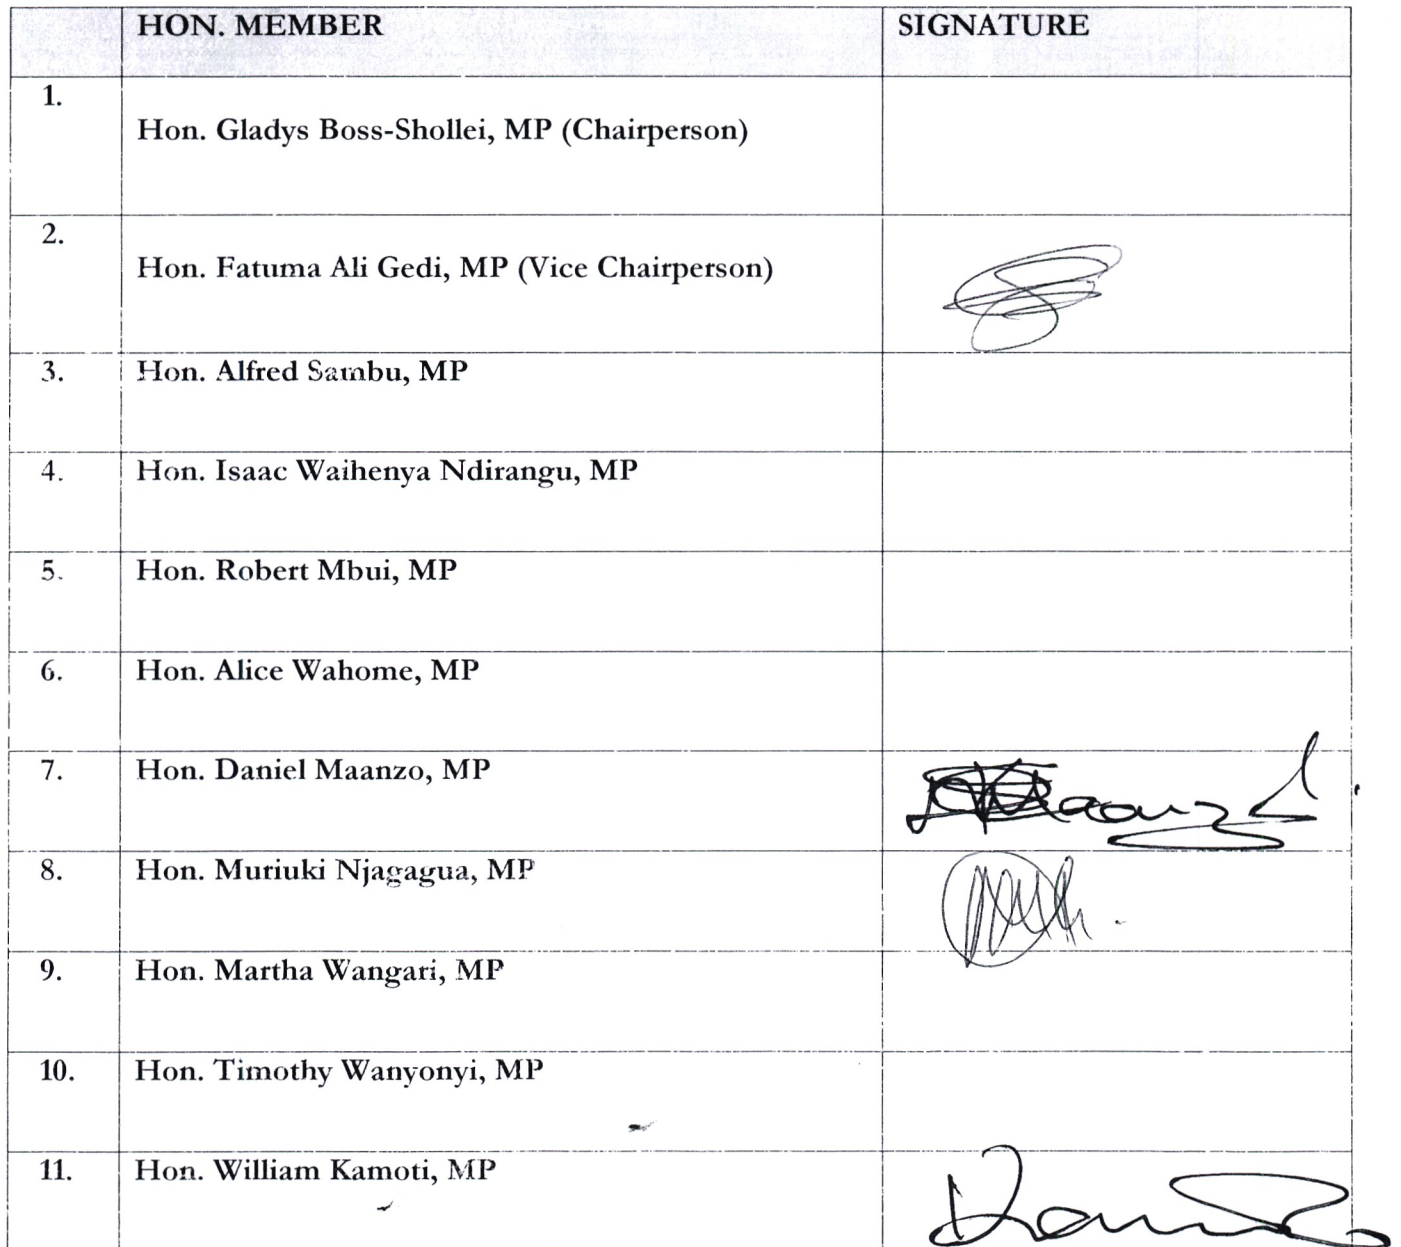 HON. MEMBER SIGNATURE
1.
Hon. Gladys Boss-Shollei, MP (Chairperson)
2.
Hon. Fatuma Ali Gedi, MP (Vice Chairperson)
3. Hon. Alfred Sambu, MP
4. Hon. Isaac Waihenya Ndirangu, MP
5. Hon. Robert Mbui, MP
6. Hon. Alice Wahome, MP
7. Hon. Daniel Maanzo, MP
8. Hon. Muriuki Njagagua, MP
9. Hon. Martha Wangari, MP
10. Hon. Timothy Wanyonyi, MP
11. Hon. William Kamoti, MP